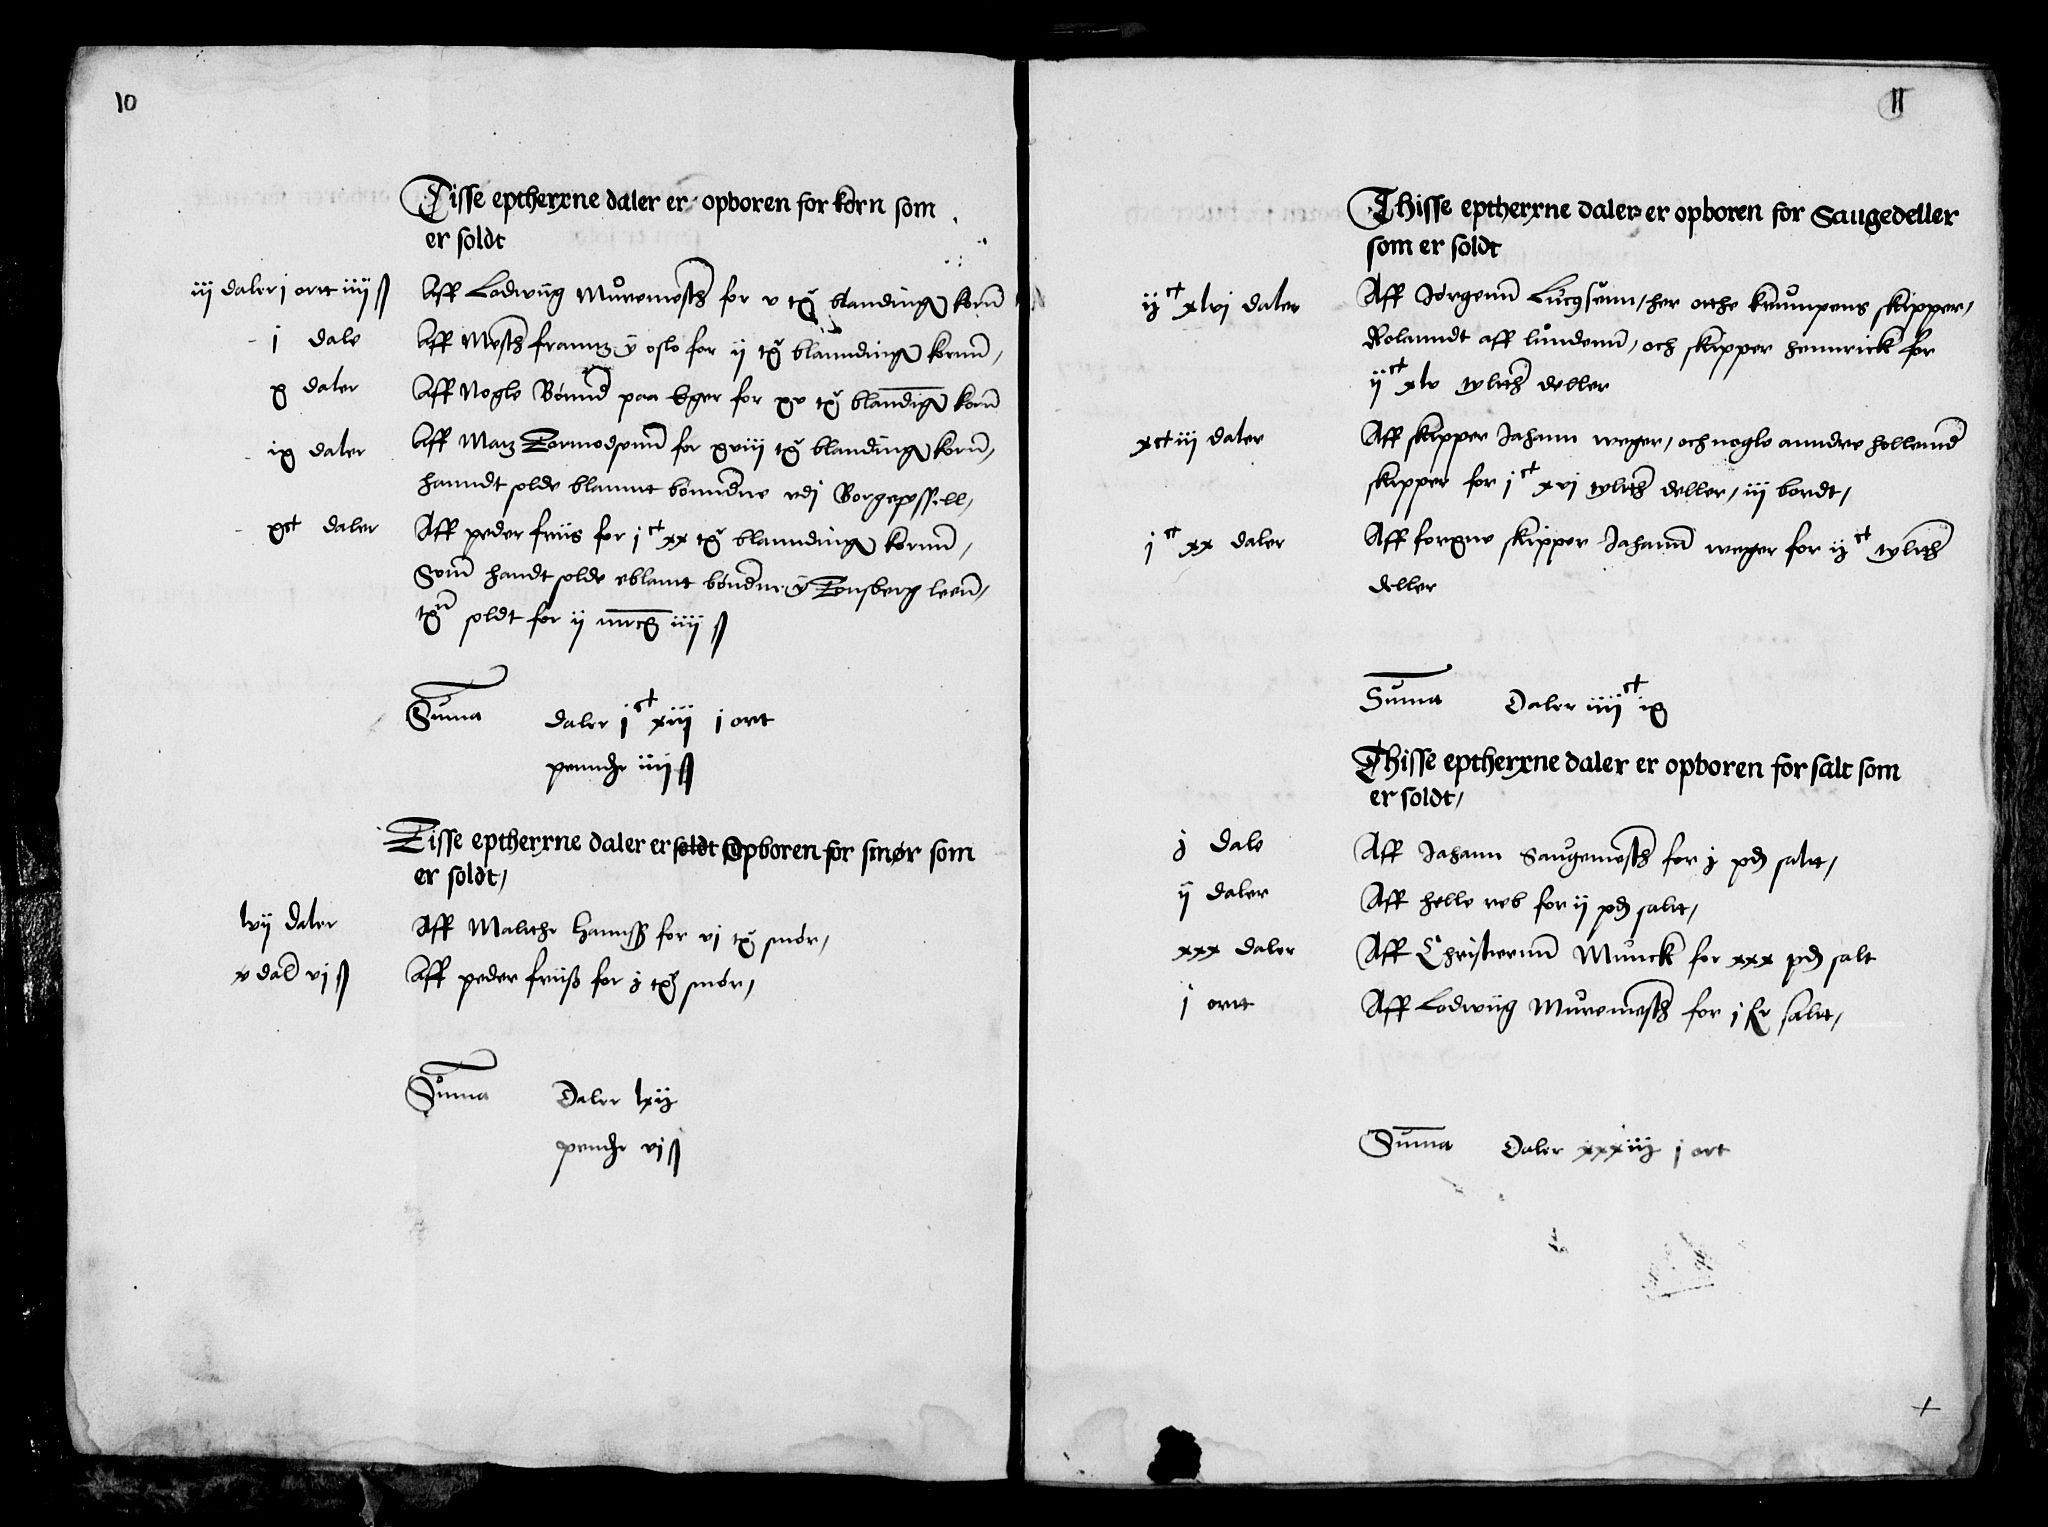 10
Tisse eptherxne daler er opboren for korn som
er soldt
iij daler j ortt iiij ß Aff Lodwiig Muremesth for v tꝫ blanding korn
j dale Aff Mesth frantz y oslo for ij tꝫ blannding kornn,
x daler Aff Nogle Bønnd paa Eger for xv tꝫ blanding korn
ix daler Aff Matz Tormodsønn for xviij tꝫ blanding korn,
hanndt solde blanntt bønnderne vdj Borgeyssell,
xc daler Aff peder friis for jct xx tꝫ blannding kornn,
Som handt solde eblantt bønderne y Tonsberg leen,
soldt for ij iiij ß
Suma daler jct xiij j ort
penndge iiij ß
Tisse eptherxne daler er soldt Opboren for smør som
er soldt,
lvij daler Aff Malthe Hannss for vj tꝫ smør,
v dale vj ß Aff peder friiß for j tꝫ smør,
Suma Daler lxij
pendge vj ß
11
Thisse eptherxne daler er opboren for Saugedeller
som er soldt
ijct xlvj daler Aff Jørgenn Lucassenn, her otthe krumpens skipper,
Rolanndt aff lundenn, och skipper hennrick for
ijct xlv tylther deller
xct iij daler Aff skipper Johann weger, och nogle anndre hollennd
skipper for jct xvj tylther deller, iij bordt,
jct xx daler Aff forgne skipper Johann weger for ijct tylther
deller
Suma Daler iiijct ix
Thisse eptherxne daler er opboren for salt som
er soldt,
j dale Aff Johann Saugemesth for j pd saltt,
ij daler Aff helle reb for ij pd saltt,
xxx daler Aff Christiernn Munck for xxx pd salt
j ortt Aff Lodwiig Muremesth for j saltt,
Suma Daler xxxiij j ort